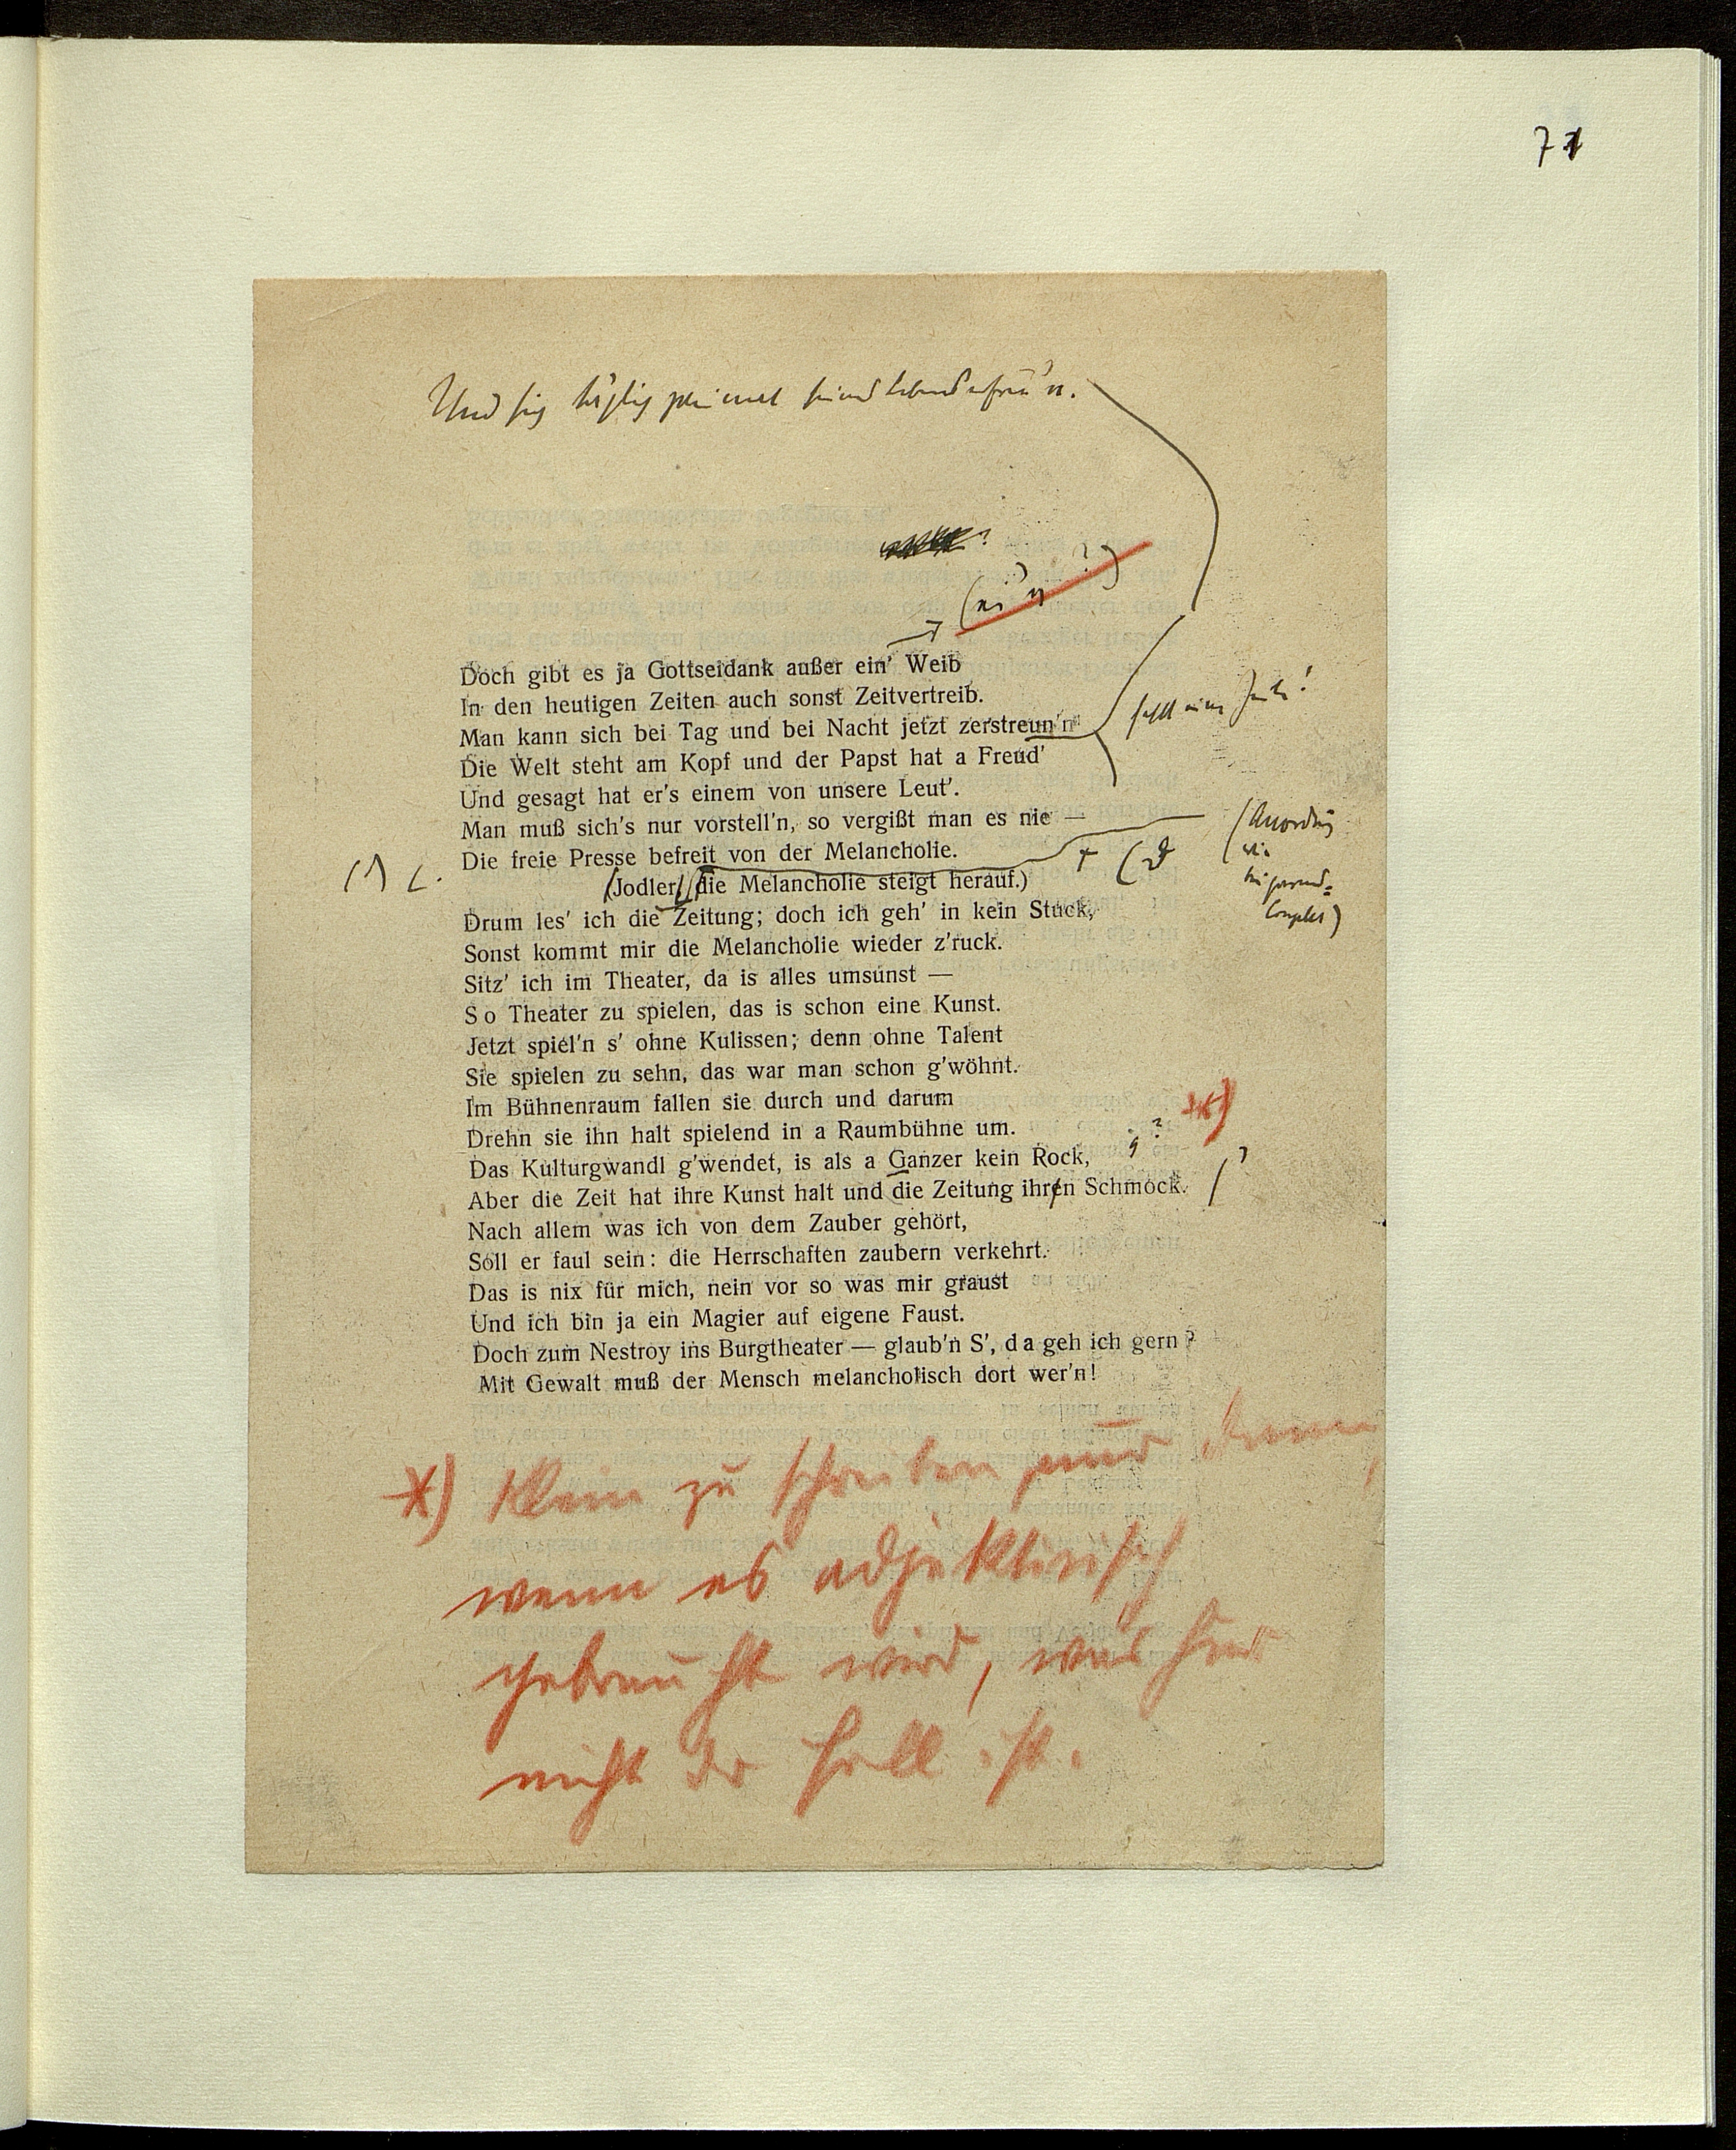 71
Und sich täglich zweimal seines Lebens erfreu'n.
(ei'n ?)
Doch gibt es ja Gottseidank außer ein' Weib
In den heutigen Zeiten auch sonst Zeitvertreib.
Man kann sich bei Tag und bei Nacht jetzt zerstreun'n
fehlt eine Zeile!
Die Welt steht am Kopf und der Papst hat a Freud'
Und gesagt hat er's einem von unsere Leut'.
Man muß sich's nur vorstell'n, so vergißt man es nie —
(Anordnung
wie
Couplet)
Die freie Presse befreit von der Melancholie.
(Jodler, die Melancholie steigt herauf.)
Drum les' ich die Zeitung; doch ich geh' in kein Stuck,
Sonst kommt mir die Melancholie wieder z'ruck.
Sitz' ich im Theater, da is alles umsunst —
So Theater zu spielen, das is schon eine Kunst.
Jetzt spiel'n s' ohne Kulissen; denn ohne Talent
Sie spielen zu sehn, das war man schon g'wöhnt.
Im Bühnenraum fallen sie durch und darum
Drehn sie ihn halt spielend in a Raumbühne um.
Das Kulturgwandl g'wendet, is als a Ganzer kein Rock,
g? *)
Aber die Zeit hat ihre Kunst halt und die Zeitung ihren Schmock.
Nach allem was ich von dem Zauber gehört,
Soll er faul sein: die Herrschaften zaubern verkehrt.
Das is nix für mich, nein vor so was mir graust
Und ich bin ja ein Magier auf eigene Faust.
Doch zum Nestroy ins Burgtheater — glaub'n S', da geh ich gern?
Mit Gewalt muß der Mensch melancholisch dort wer'n!
*) Klein zu schreiben nur dann,
wenn es adjektivisch
gebraucht wird, was hier
nicht der Fall ist.